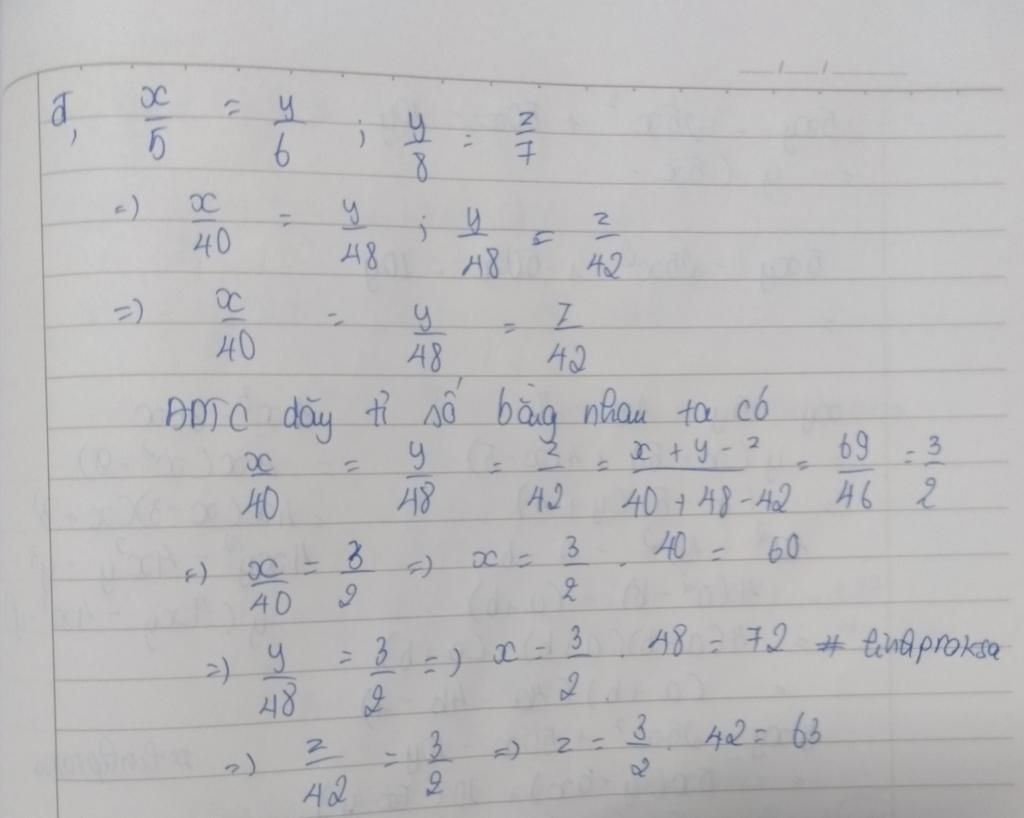 đ, x/5 = y/6 ; y/8 = z/7
=) x/40 = y/48 ; y/48 = z/42
=) x/40 = y/48 = z/42
ADTC dãy tỉ số bằng nhau ta có
x/40 = y/48 = z/42 = (x + y - z)/(40 + 48 - 42) = 69/46 = 3/2
=) x/40 = 3/2 =) x = 3/2 . 40 = 60
=) y/48 = 3/2 =) x = 3/2 . 48 = 72 #
=) z/42 = 3/2 =) z = 3/2 . 42 = 63